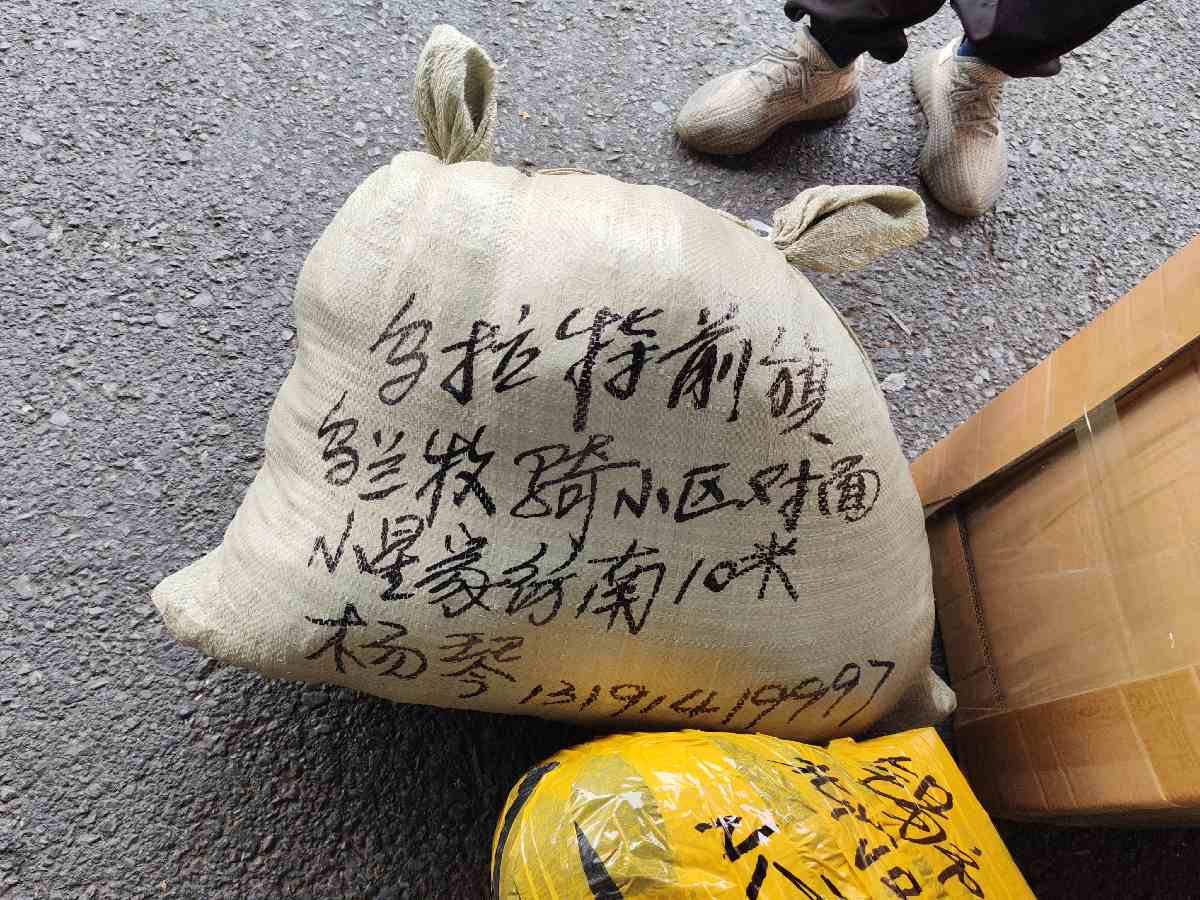 乌拉特前旗
乌兰牧骑小区对面
小星蒙餐南10米
杨琴 13191419997